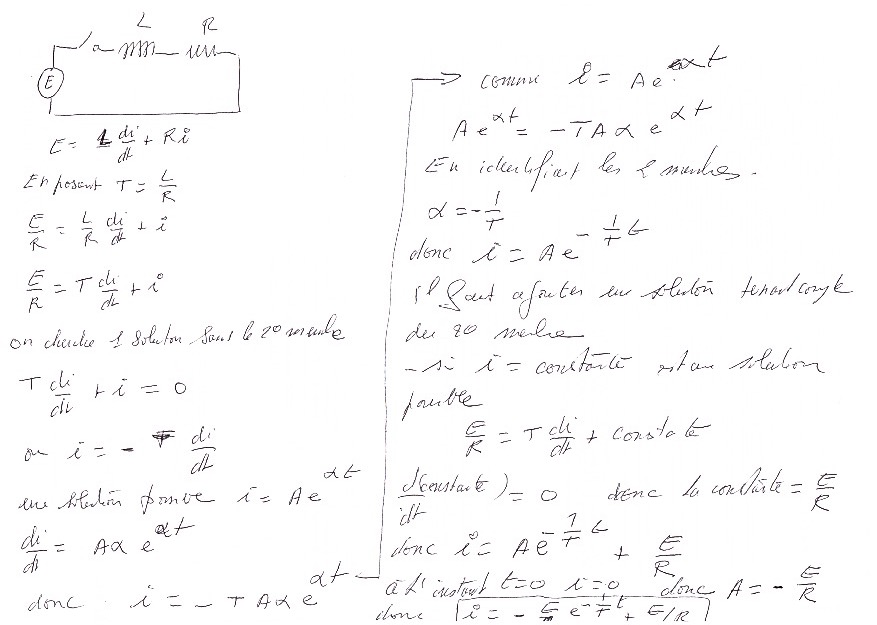 L R
E
E = L di/dt + Ri
En posant T = L/R
E/R = L/R di/dt + i
E/R = T di/dt + i
on cherche 1 solution sans le 2° membre
T di/dt + i = 0
ou i = - T di/dt
une solution possible i = A e^αt
di/dt = Aα e^αt
donc i = - T Aα e^αt
comme i = A e^αt
A e^αt = - T A α e^αt
En identifiant les 2 membres.
α = - 1/T
donc i = A e^- 1/T t
il faut ajouter une solution tenant compte
du 2° membre
- si i = constante est une solution
possible
E/R = T di/dt + constante
d(constante)/dt = 0 donc la constante = E/R
donc i = A e^- 1/T t + E/R
à l'instant t=0 i=0 donc A = - E/R
donc i = - E/R e^- 1/T t + E/R